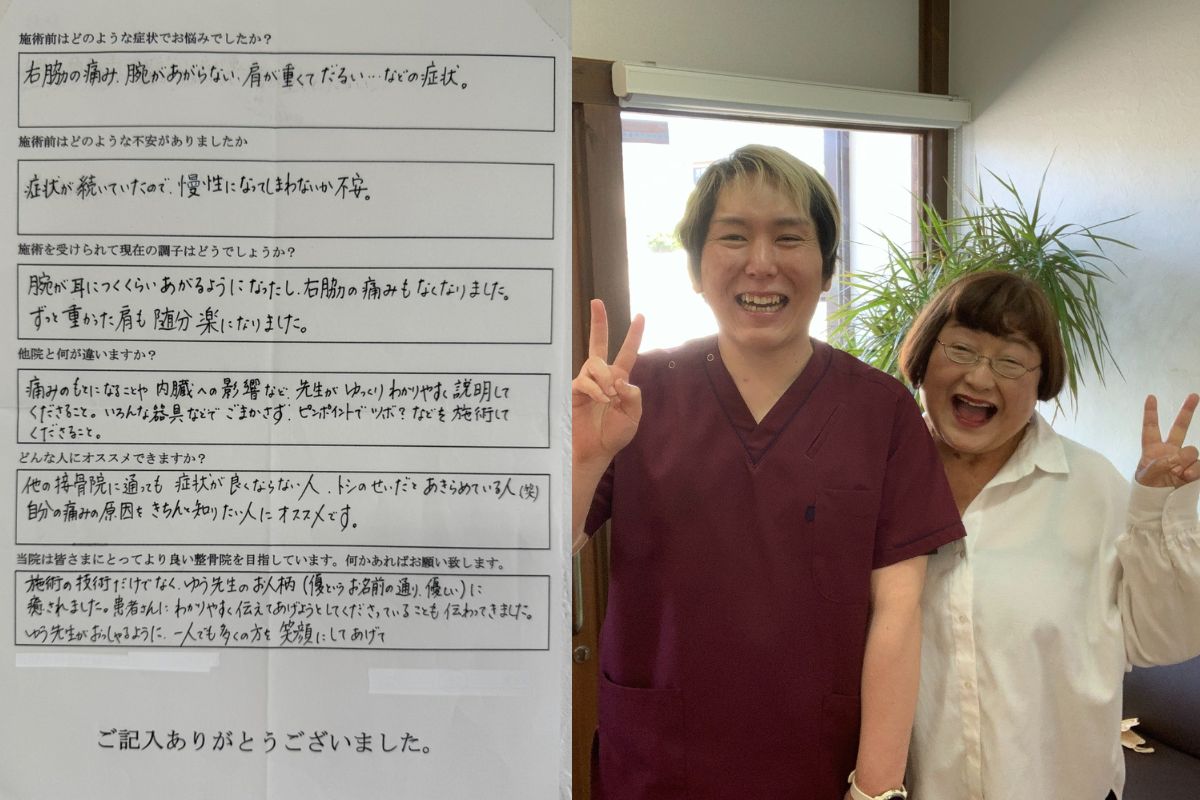 施術前はどのような症状でお悩みでしたか？
右脇の痛み、腕があがらない、肩が重くてだるい…などの症状。
施術前はどのような不安がありましたか
症状が続いていたので、慢性になってしまわないか不安。
施術を受けられて現在の調子はどうでしょうか？
腕が耳につくくらいあがるようになったし、右脇の痛みもなくなりました。
ずっと重かった肩も随分楽になりました。
他院と何が違いますか？
痛みのもとになることや内臓への影響など、先生がゆっくりわかりやすく説明して
くださること。いろんな器具などでごまかさず、ピンポイントでツボ？などを施術して
くださること。
どんな人にオススメできますか？
他の接骨院に通っても症状が良くならない人、トシのせいだとあきらめている人(笑)
自分の痛みの原因をきちんと知りたい人にオススメです。
当院は皆さまにとってより良い整骨院を目指しています。何かあればお願い致します。
施術の技術だけでなく、ゆう先生のお人柄(優というお名前の通り、優しい)に
癒されました。患者さんにわかりやすく伝えてあげようとしてくださっていることも伝わってきました。
ゆう先生がおっしゃるように、一人でも多くの方を笑顔にしてあげて
ご記入ありがとうございました。